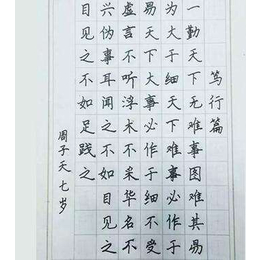 笃行篇
一勤天下无难事图难其易
为于大细天下难事必作于
易天下大事必作于细不受
虚言不听浮术不采华名不
兴伪事耳闻之不如目见之
目见之不如足践之
周子天七岁